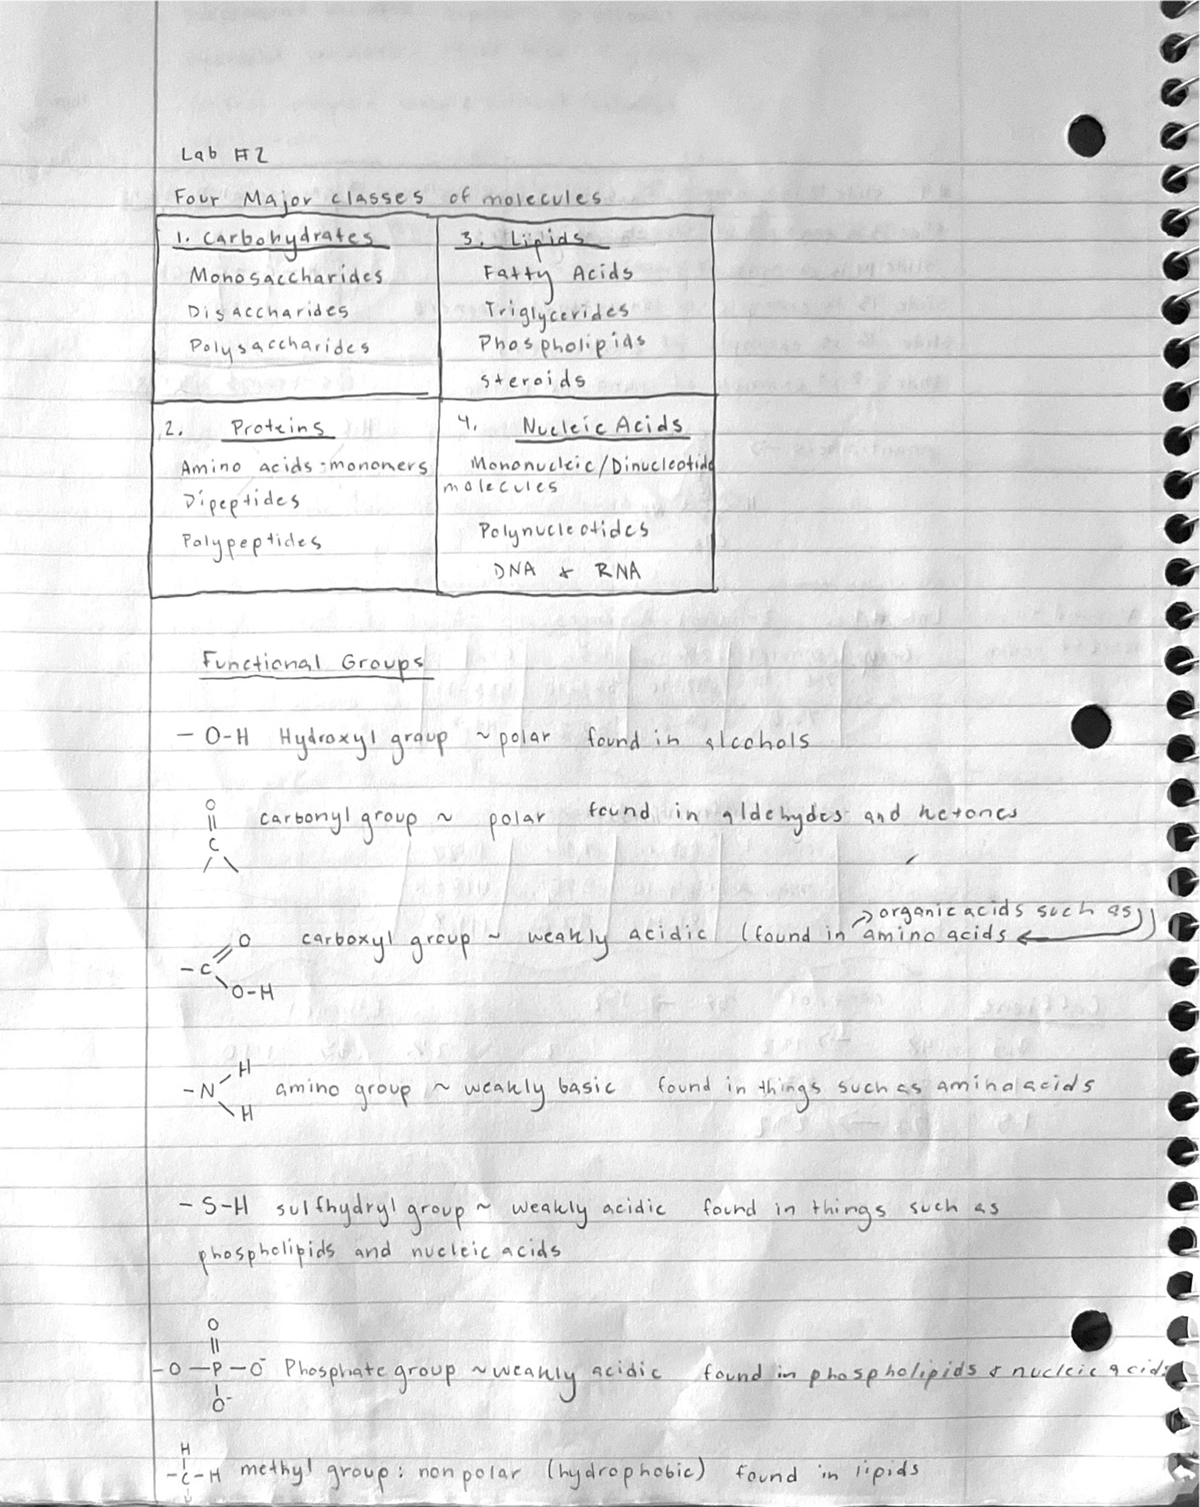 Lab #2
Four Major classes of molecules
1. Carbohydrates
Monosaccharides
Disaccharides
Polysaccharides
3. Lipids
Fatty Acids
Triglycerides
Phospholipids
steroids
2. Proteins
Amino acids - monomers
Dipeptides
Polypeptides
4. Nucleic Acids
Mononucleic/Dinucleotide
molecules
Polynucleotides
DNA & RNA
Functional Groups
- O-H Hydroxyl group ~ polar found in alcohols
O
||
C
/ \
carbonyl group ~ polar found in aldehydes and ketones
organic acids such as)
O carboxyl group ~ weakly acidic (found in amino acids
- C
O-H
H
- N amino group ~ weakly basic found in things such as amino acids
H
- S-H sulfhydryl group ~ weakly acidic found in things such as
phospholipids and nucleic acids
O
||
-O-P-O⁻ Phosphate group ~ weakly acidic found in phospholipids & nucleic acids
O⁻
H
-C-H methyl group: nonpolar (hydrophobic) found in lipids